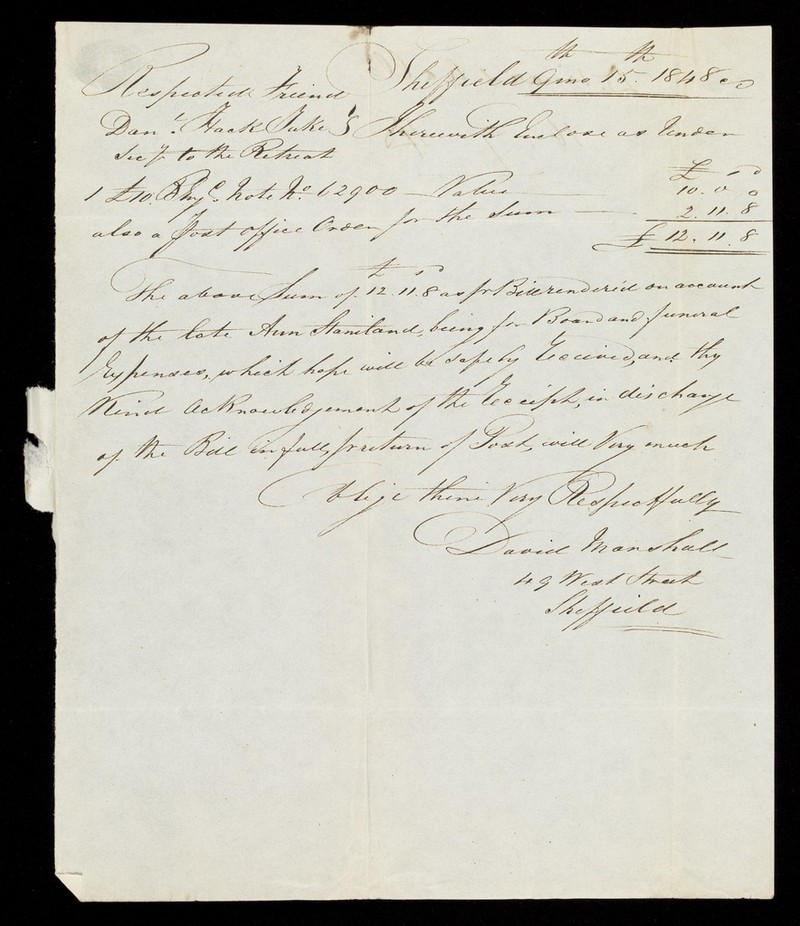 Sheffield 9th mo 15th 1848
Respected Friend
Danl. Hack Tuke I herewith Enclose as Under
Secy. to the Retreat £ s d
1 £10 Note No. 62900 - Value 10. 0 0
also a Post office Order for the Sum 2. 11. 8
£ 12. 11. 8
The above Sum of £12. 11s. 8d as pr Bill rendered on account
of the late Ann Staniland, being for Board and funeral
Expenses, which hope will be safely Received, and thy
Kind Acknowledgement of the Receipt, in discharge
of the Bill in full, pr return of Post, will Very much
Oblige thine Very Respectfully
David Marshall
49 West Street
Sheffield